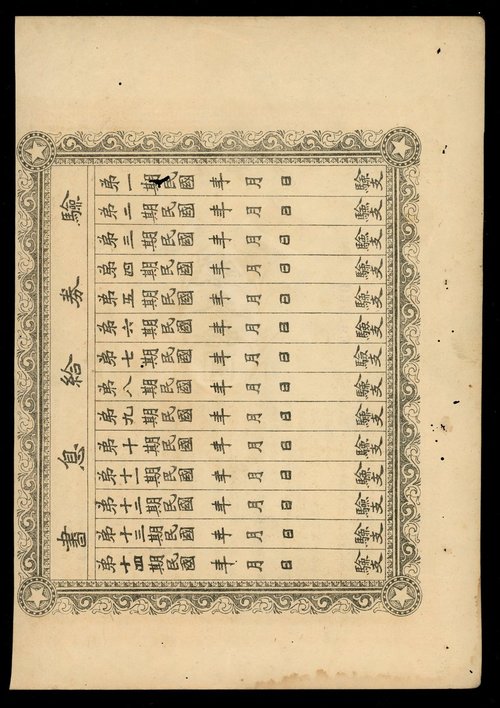 驗券給息書
第一期民國 年 月 日 驗支
第二期民國 年 月 日 驗支
第三期民國 年 月 日 驗支
第四期民國 年 月 日 驗支
第五期民國 年 月 日 驗支
第六期民國 年 月 日 驗支
第七期民國 年 月 日 驗支
第八期民國 年 月 日 驗支
第九期民國 年 月 日 驗支
第十期民國 年 月 日 驗支
第十一期民國 年 月 日 驗支
第十二期民國 年 月 日 驗支
第十三期民國 年 月 日 驗支
第十四期民國 年 月 日 驗支